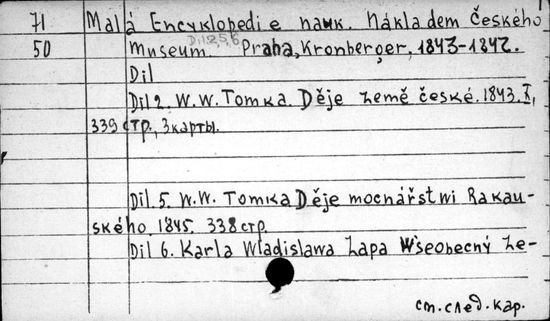 71 Malá Encyklopedie nauk. Nákladem Českého
Dil 2,5,6
50 museum. Praha, Kronberger, 1843-1847.
Dil
Dil 2. W.W. Tomka. Děje země české. 1843. X,
339 стр., 3 карты.
Dil. 5. W.W. Tomka Děje mocnářstwi Rakau-
ského. 1845. 338 стр.
Dil 6. Karla Wladislawa Zapa Wšeobecný ze-
см. след. кар.